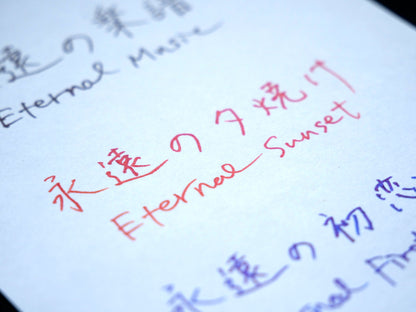 遠の楽譜
Eternal Music
永遠の夕焼け
Eternal Sunset
永遠の初恋
nal First